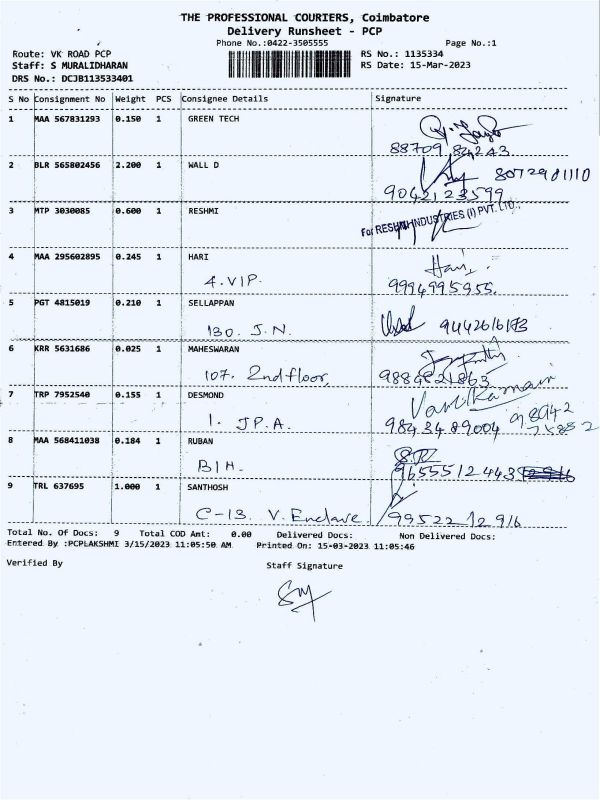 THE PROFESSIONAL COURIERS, Coimbatore
Delivery Runsheet - PCP
Phone No.:0422-3505555 Page No.:1
Route: VK ROAD PCP RS No.: 1135334
Staff: S MURALIDHARAN RS Date: 15-Mar-2023
DRS No.: DCJB113533401
S No Consignment No Weight PCS Consignee Details Signature
1 MAA 567831293 0.150 1 GREEN TECH
88709 824243
2 BLR 565802456 2.200 1 WALL D 8072981110
9042123599
3 MTP 3030085 0.600 1 RESHMI
For RESHMI INDUSTRIES (I) PVT. LTD.,
4 MAA 295602895 0.245 1 HARI Hari
4. VIP. 9994995955.
5 PGT 4815019 0.210 1 SELLAPPAN
130. J.N. 9442616173
6 KRR 5631686 0.025 1 MAHESWARAN
107. 2nd floor, 9884821863
7 TRP 7952540 0.155 1 DESMOND
1. JP.A. 9843489004
8 MAA 568411038 0.184 1 RUBAN
B1H. 9655512443
9 TRL 637695 1.000 1 SANTHOSH
C-13. V. Enclave 99522 12916
Total No. Of Docs: 9 Total COD Amt: 0.00 Delivered Docs: Non Delivered Docs:
Entered By :PCPLAKSHMI 3/15/2023 11:05:50 AM Printed On: 15-03-2023 11:05:46
Verified By Staff Signature